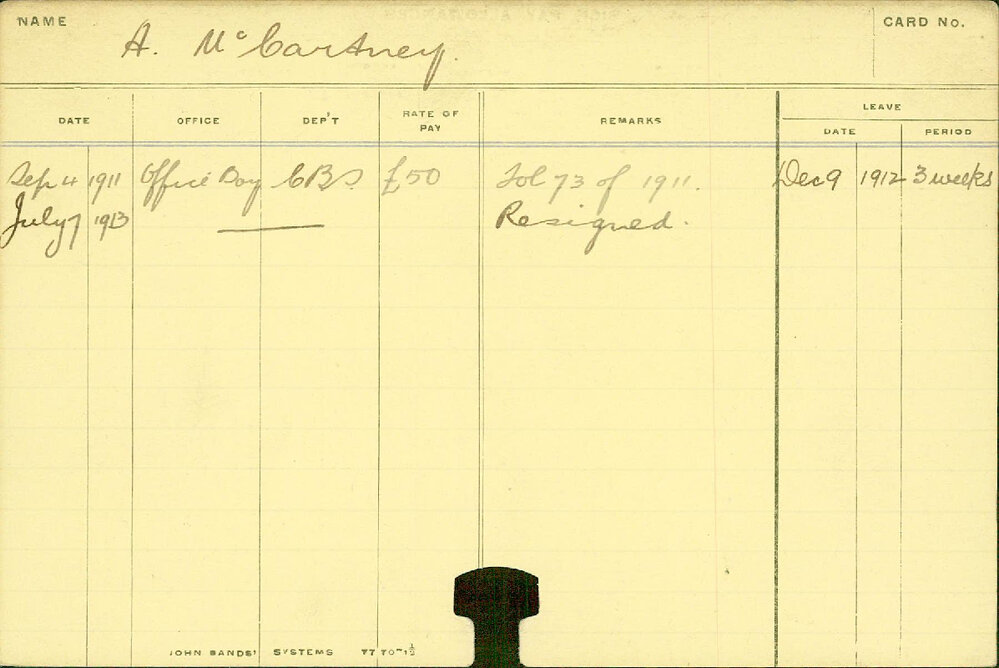 NAME A. McCartney. CARD No.
LEAVE
DATE OFFICE DEP'T RATE OF PAY REMARKS DATE PERIOD
Sep 4 1911 Office Boy CBS £50 Fol 73 of 1911. Dec 9 1912 3 weeks
July 7 1913 Resigned.
JOHN SANDS' SYSTEMS